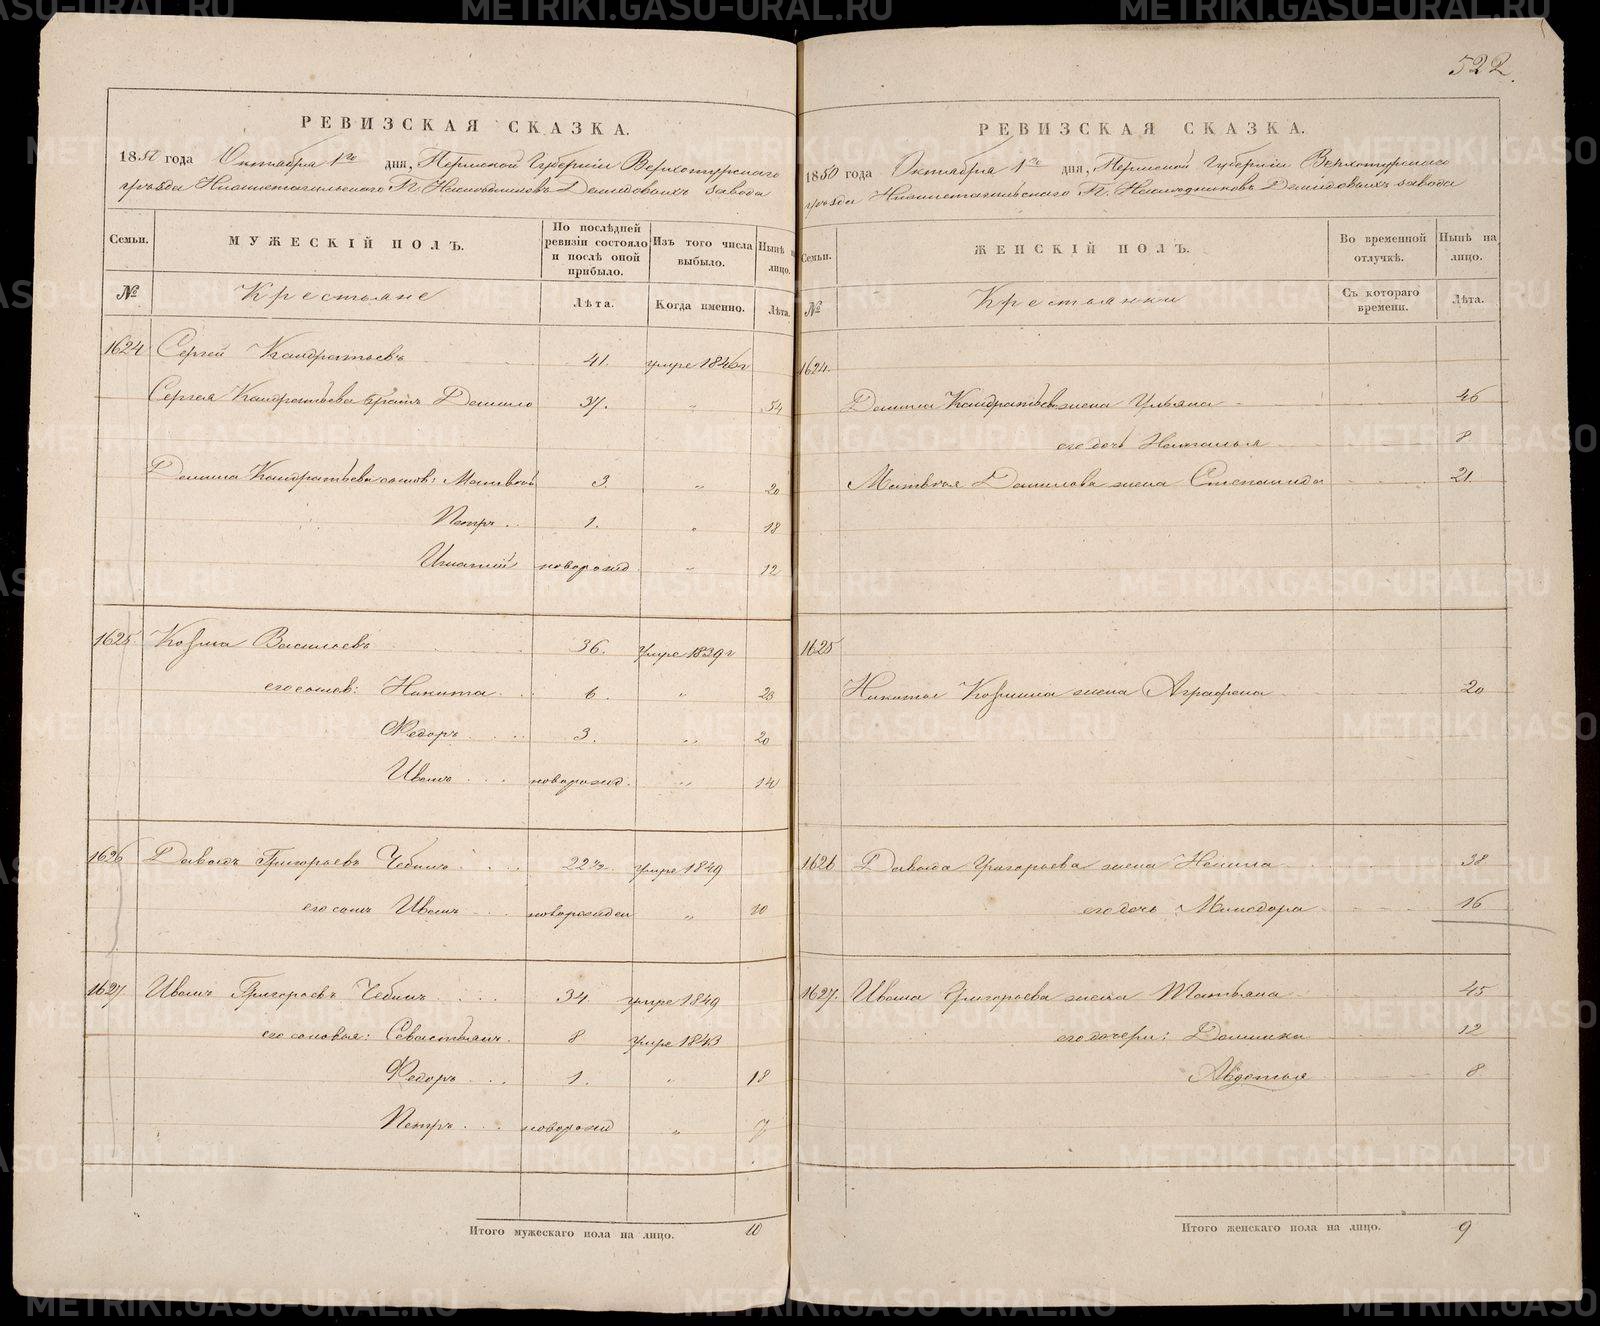 522.
РЕВИЗСКАЯ СКАЗКА.
1850 года Октября 1го дня, Пермской Губерніи Верхотурского
уѣзда Нижнетагильского Г.г. Наслѣдниковъ Демидовыхъ завода
Семьи. МУЖЕСКІЙ ПОЛЪ. По послѣдней ревизіи состояло и послѣ оной прибыло. Изъ того числа выбыло. Нынѣ на лицо.
№ Крестьяне Лѣта. Когда именно. Лѣта.
1624 Сергей Кандратьевъ 41. умре 1846г
Сергея Кандратьева братъ Данило 37. „ 54
Данила Кандратьева сыновья: Матвѣй 3. „ 20
Петръ 1. „ 18
Игнатій новорожд „ 12
1625 Козма Васильевъ 36. умре 1839г
его сыновья: Никита 6. „ 23
Федоръ 3. „ 20
Иванъ новорожд. „ 14
1626 Давыдъ Григорьевъ Чебинъ 22 1/2 умре 1849
его сынъ Иванъ новорожден „ 10
1627 Иванъ Григорьевъ Чебинъ 34 умре 1849
его сыновья: Севастьянъ 8 умре 1843
Федоръ 1. „ 18
Петръ новорожд „ 7
Итого мужескаго пола на лицо. 10
РЕВИЗСКАЯ СКАЗКА.
1850 года Октября 1го дня, Пермской Губерніи Верхотурского
уѣзда Нижнетагильского Г.г. Наслѣдниковъ Демидовыхъ завода
Семьи. ЖЕНСКІЙ ПОЛЪ. Во временной отлучкѣ. Нынѣ на лицо.
№ Крестьянки Съ котораго времени. Лѣта.
1624.
Данила Кандратьева жена Ульяна 46
его дочь Наталья 8
Матвѣя Данилова жена Степанида 21.
1625
Никиты Козмина жена Аграфена 20
1626 Давыда Григорьева жена Ненила 38
его дочь Минодора 16
1627. Ивана Григорьева жена Татьяна 45
его дочери: Домника 12
Авдотья 8
Итого женскаго пола на лицо. 9
METRIKI.GASO-URAL.RU